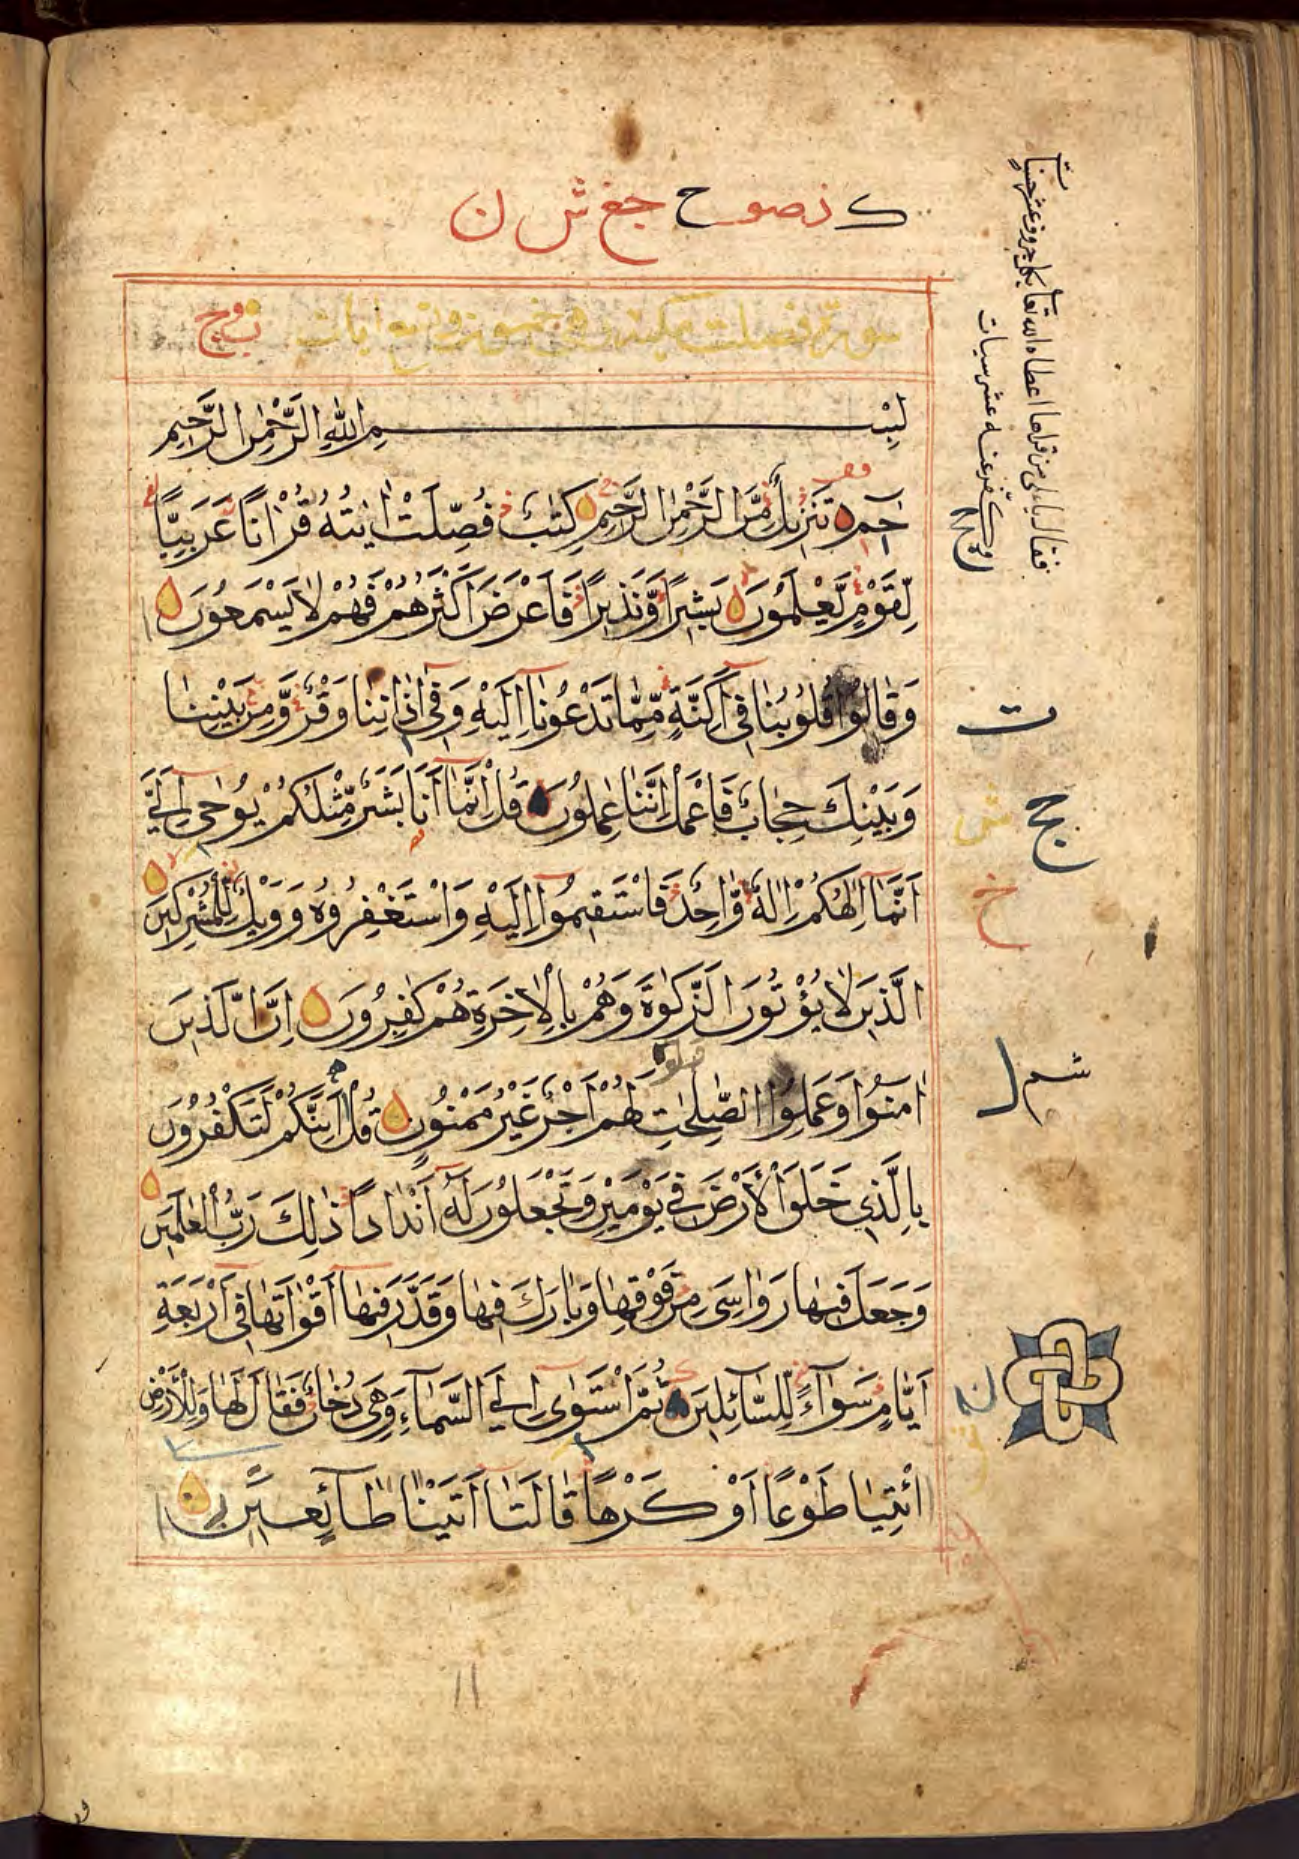 ک نصوح جغ ش ن
سورة فصلت مكية وهي خمسون واربع ايات
بِسْمِ اللّٰهِ الرَّحْمٰنِ الرَّحِيمِ
حٰمٓ تَنْزِيلٌ مِّنَ الرَّحْمٰنِ الرَّحِيمِ كِتٰبٌ فُصِّلَتْ اٰيٰتُهُ قُرْاٰنًا عَرَبِيًّا
لِّقَوْمٍ يَّعْلَمُونَ بَشِيرًا وَّنَذِيرًا فَاَعْرَضَ اَكْثَرُهُمْ فَهُمْ لَا يَسْمَعُونَ
وَقَالُوا قُلُوبُنَا فِيٓ اَكِنَّةٍ مِّمَّا تَدْعُونَآ اِلَيْهِ وَفِيٓ اٰذَانِنَا وَقْرٌ وَّمِنْ بَيْنِنَا
وَبَيْنِكَ حِجَابٌ فَاعْمَلْ اِنَّنَا عٰمِلُونَ قُلْ اِنَّمَآ اَنَا بَشَرٌ مِّثْلُكُمْ يُوحٰٓى اِلَيَّ
اَنَّمَآ اِلٰهُكُمْ اِلٰهٌ وَّاحِدٌ فَاسْتَقِيمُوٓا اِلَيْهِ وَاسْتَغْفِرُوهُ وَوَيْلٌ لِّلْمُشْرِكِينَ
الَّذِينَ لَا يُؤْتُونَ الزَّكٰوةَ وَهُمْ بِالْاٰخِرَةِ هُمْ كٰفِرُونَ اِنَّ الَّذِينَ
اٰمَنُوا وَعَمِلُوا الصّٰلِحٰتِ لَهُمْ اَجْرٌ غَيْرُ مَمْنُونٍ قُلْ اَئِنَّكُمْ لَتَكْفُرُونَ
بِالَّذِي خَلَقَ الْاَرْضَ فِي يَوْمَيْنِ وَتَجْعَلُونَ لَهُٓ اَنْدَادًا ذٰلِكَ رَبُّ الْعٰلَمِينَ
وَجَعَلَ فِيهَا رَوَاسِيَ مِنْ فَوْقِهَا وَبَارَكَ فِيهَا وَقَدَّرَ فِيهَآ اَقْوَاتَهَا فِيٓ اَرْبَعَةِ
اَيَّامٍ سَوَآءً لِّلسَّآئِلِينَ ثُمَّ اسْتَوٰٓى اِلَى السَّمَآءِ وَهِيَ دُخَانٌ فَقَالَ لَهَا وَلِلْاَرْضِ
ائْتِيَا طَوْعًا اَوْ كَرْهًا قَالَتَآ اَتَيْنَا طَآئِعِينَ
من قراها اعطاه الله تعا بكل حروف عشر حسنات
عنه عشر سيات
ت
ج
ش
خ
شم ل
ن
ق
11